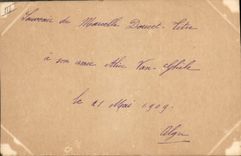 Souvenir de Marcelle Doucet-
à son amie Aline Van-
le 21 Mai 1909.
Alger